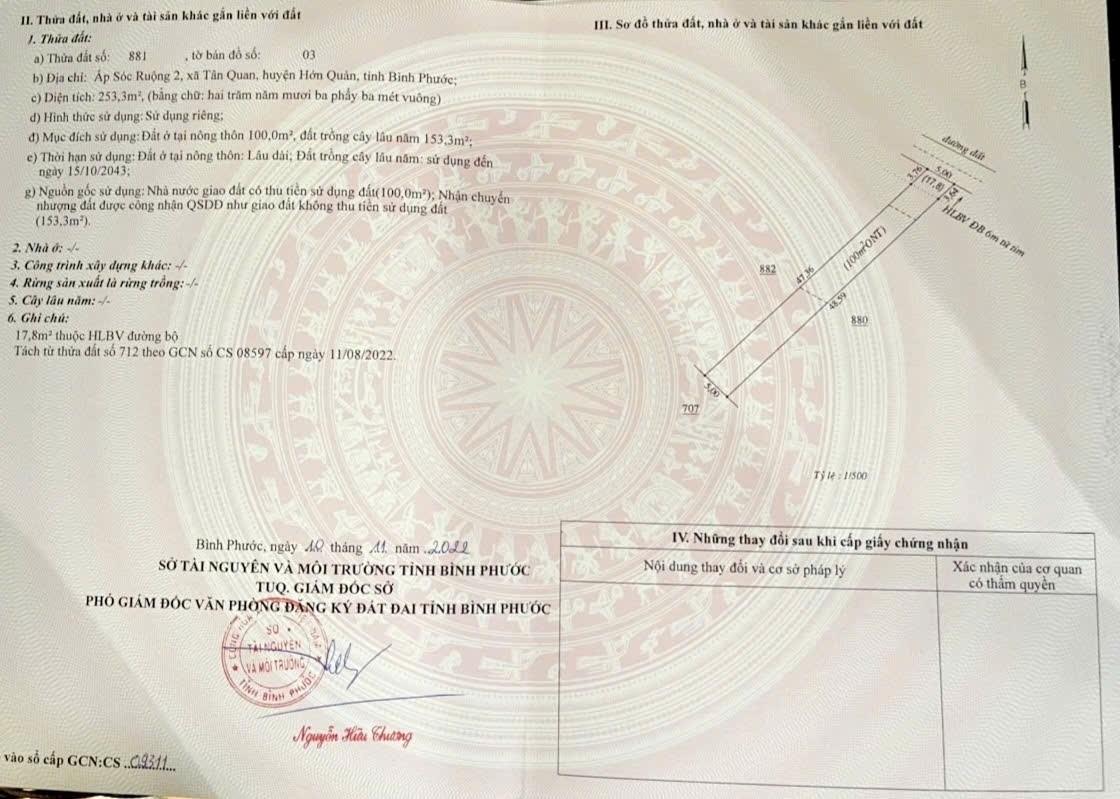 II. Thửa đất, nhà ở và tài sản khác gắn liền với đất
1. Thửa đất:
a) Thửa đất số: 881 , tờ bản đồ số: 03
b) Địa chỉ: Ấp Sóc Ruộng 2, xã Tân Quan, huyện Hớn Quản, tỉnh Bình Phước;
c) Diện tích: 253,3m², (bằng chữ: hai trăm năm mươi ba phẩy ba mét vuông)
d) Hình thức sử dụng: Sử dụng riêng;
đ) Mục đích sử dụng: Đất ở tại nông thôn 100,0m², đất trồng cây lâu năm 153,3m²;
e) Thời hạn sử dụng: Đất ở tại nông thôn: Lâu dài; Đất trồng cây lâu năm: sử dụng đến
ngày 15/10/2043;
g) Nguồn gốc sử dụng: Nhà nước giao đất có thu tiền sử dụng đất(100,0m²); Nhận chuyển
nhượng đất được công nhận QSDĐ như giao đất không thu tiền sử dụng đất
(153,3m²).
2. Nhà ở: -/-
3. Công trình xây dựng khác: -/-
4. Rừng sản xuất là rừng trồng: -/-
5. Cây lâu năm: -/-
6. Ghi chú:
17,8m² thuộc HLBV đường bộ
Tách từ thửa đất số 712 theo GCN số CS 08597 cấp ngày 11/08/2022.
Bình Phước, ngày 10 tháng 11 năm 2022
SỞ TÀI NGUYÊN VÀ MÔI TRƯỜNG TỈNH BÌNH PHƯỚC
TUQ. GIÁM ĐỐC SỞ
PHÓ GIÁM ĐỐC VĂN PHÒNG ĐĂNG KÝ ĐẤT ĐAI TỈNH BÌNH PHƯỚC
SỞ
TÀI NGUYÊN
VÀ MÔI TRƯỜNG
TỈNH BÌNH PHƯỚC
Nguyễn Hữu Chương
vào sổ cấp GCN:CS ..09311...
III. Sơ đồ thửa đất, nhà ở và tài sản khác gắn liền với đất
B
đường đất
5,00
3,76
(17,8)
HLBV ĐB 6m từ tim
(100m²ONT)
882
47,36
48,59
880
5,00
707
Tỷ lệ : 1/500
IV. Những thay đổi sau khi cấp giấy chứng nhận
Nội dung thay đổi và cơ sở pháp lý
Xác nhận của cơ quan
có thẩm quyền